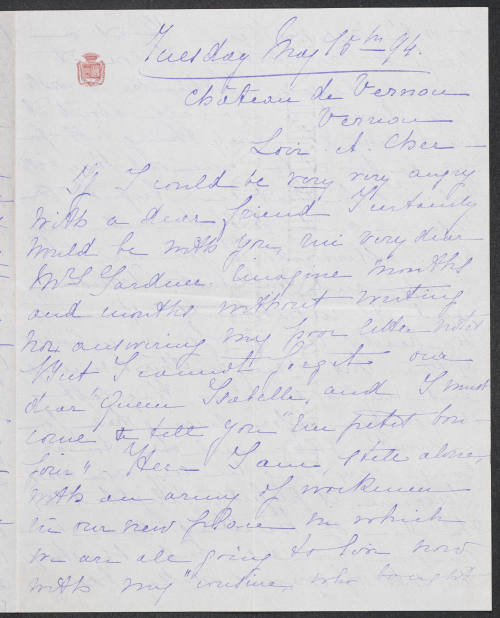 Tuesday May 15th 94.
Château de Vernou
Vernou
Loir. &. Cher -
If I could be very very angry
with a dear friend I certainly
would be with you, my very dear
Mrs Gardner. Imagine months
and months without writing
nor answering my poor letter
But I cannot forget our
dear "Queen Isabelle, and I must
come to tell you "Un petit bon-
jour". Here I am, alone,
with an army of workmen
in our new place in which
we are all going to live now
with my "cousine, who bought